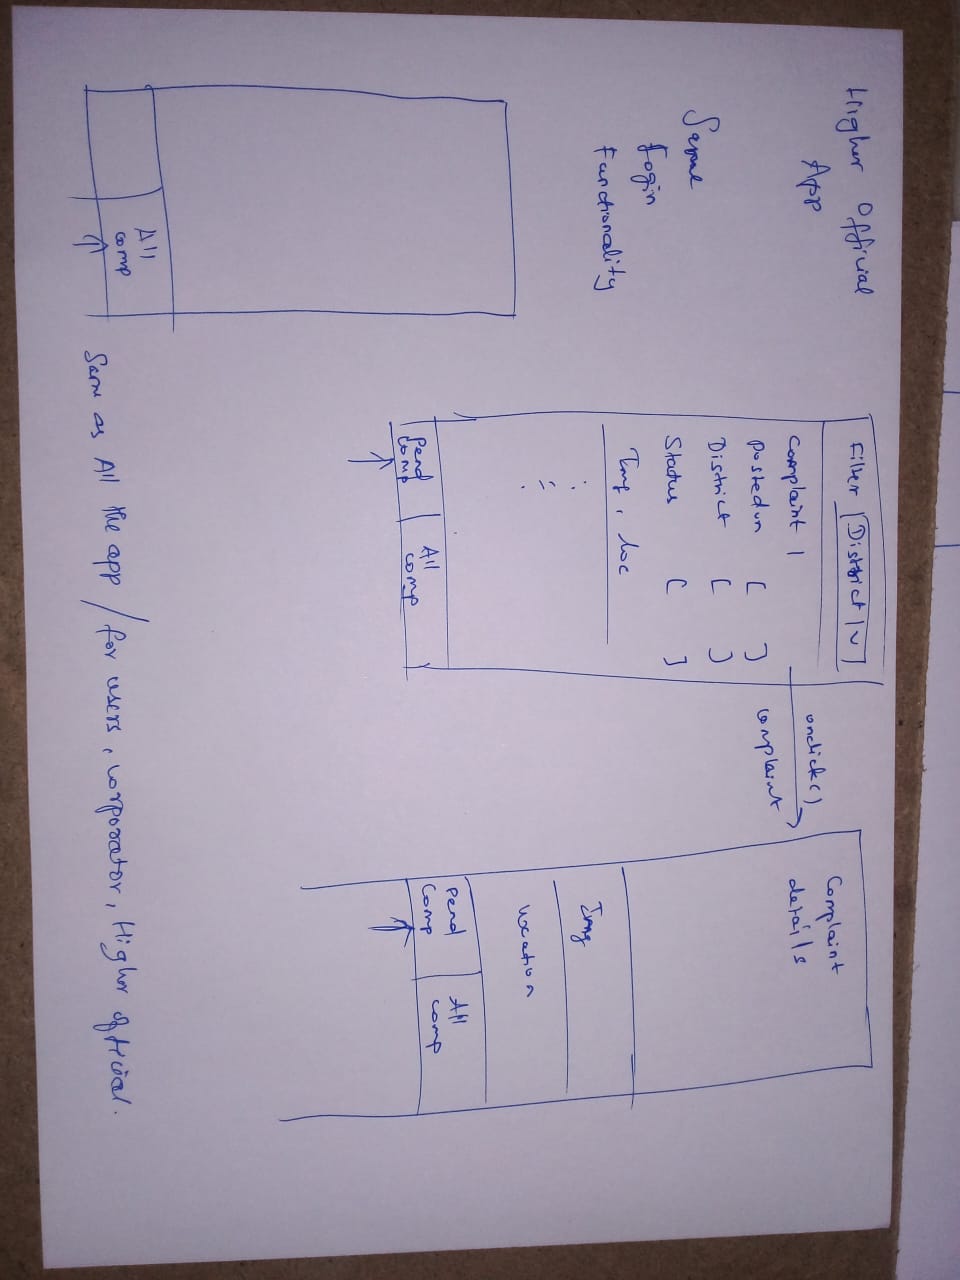 Higher Official
App
Same
Login
Functionality
Filter District
Complaint 1
Posted on [ ]
District [ ]
Status [ ]
Img, loc
Pend
Comp
All
comp
onclick()
complaint
Complaint
details
Img
Location
Pend
Comp
All
comp
All
comp
Same as All the app / for users, corporator, Higher official.